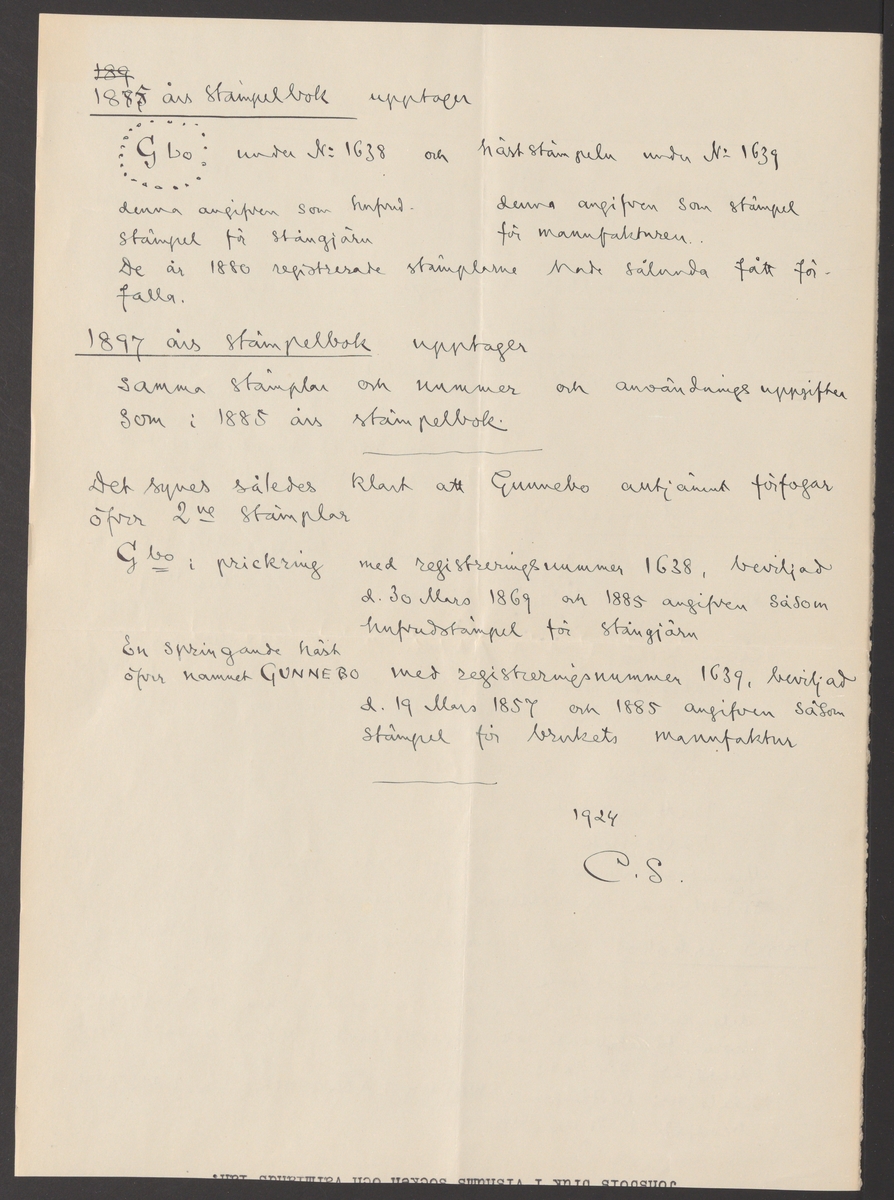 189
1885 års stämpelbok upptager
Gbo under No 1638 och häststämpeln under No 1639
denna angifven som hufvud-
stämpel för stångjärn
denna angifven som stämpel
för manufakturen.
De år 1880 registrerade stämplarne hade sålunda fått för-
falla.
1897 års stämpelbok upptager
samma stämplar och nummer och användningsuppgifter
som i 1885 års stämpelbok.
Det synes således klart att Gunnebo alljämt förfogar
öfver 2ne stämplar
Gbo i prickring med registreringsnummer 1638, beviljad
d. 30 Mars 1869 och 1885 angifven såsom
hufvudstämpel för stångjärn
En springande häst
öfver namnet GUNNEBO med registreringsnummer 1639, beviljad
d. 19 Mars 1857 och 1885 angifven såsom
stämpel för brukets manufaktur
1924
C.S.